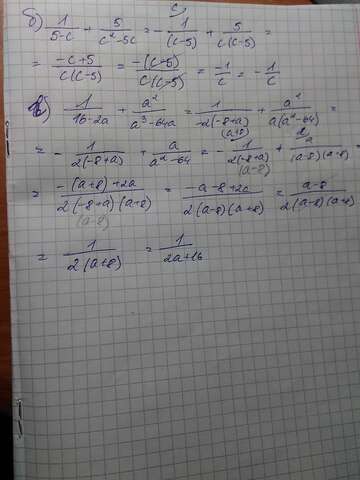 б) 1/(5-c) + 5/(c²-5c) = - 1/(c-5) + 5/(c(c-5)) =
= (-c+5)/(c(c-5)) = -(c-5)/(c(c-5)) = -1/c = - 1/c
1/(16-2a) + a²/(a³-64a) = 1/(-2(-8+a)) + a²/(a(a²-64)) =
= - 1/(2(-8+a)) + a/(a²-64) = - 1/(2(-8+a)) (a-8) + a/((a-8)(a+8)) =
= (-(a+8)+2a)/(2(-8+a)(a+8)) (a-8) = (-a-8+2a)/(2(a-8)(a+8)) = (a-8)/(2(a-8)(a+8))
= 1/(2(a+8)) = 1/(2a+16)